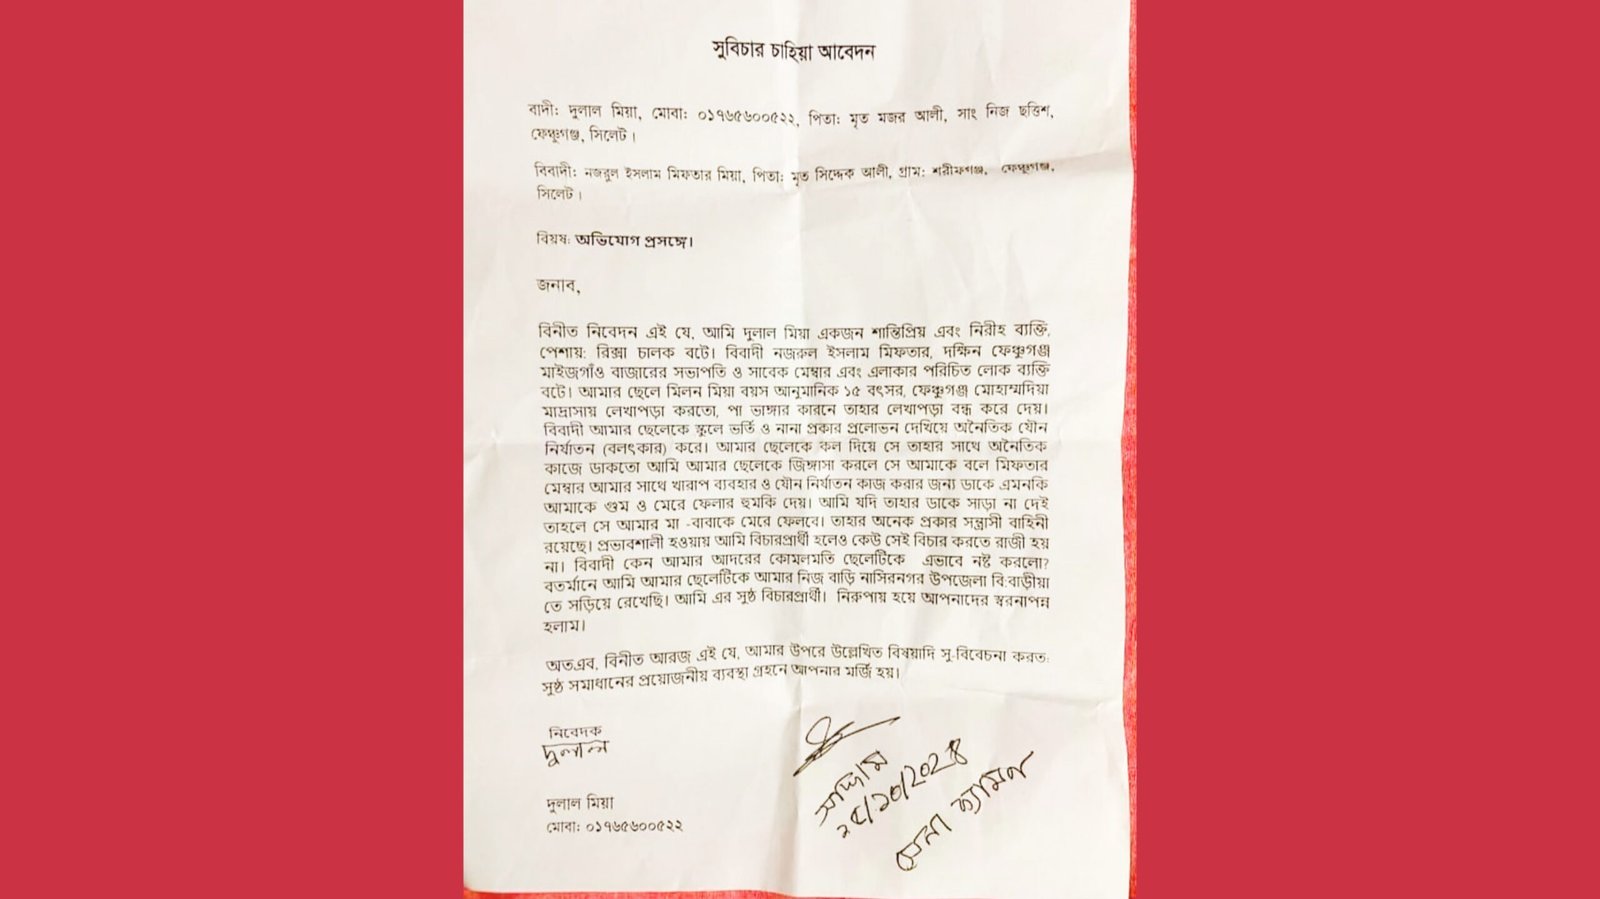 সুবিচার চাহিয়া আবেদন
বাদী: দুলাল মিয়া, মোবা: ০১৭৬৫৬০০৫২২, পিতা: মৃত মজর আলী, সাং নিজ ছত্তিশ,
ফেঞ্চুগঞ্জ, সিলেট।
বিবাদী: নজরুল ইসলাম মিফতার মিয়া, পিতা: মৃত সিদ্দেক আলী, গ্রাম: শরীফগঞ্জ, ফেঞ্চুগঞ্জ,
সিলেট।
বিয়ষ: অভিযোগ প্রসঙ্গে।
জনাব,
বিনীত নিবেদন এই যে, আমি দুলাল মিয়া একজন শান্তিপ্রিয় এবং নিরীহ ব্যক্তি,
পেশায়: রিক্সা চালক বটে। বিবাদী নজরুল ইসলাম মিফতার, দক্ষিন ফেঞ্চুগঞ্জ
মাইজগাঁও বাজারের সভাপতি ও সাবেক মেম্বার এবং এলাকার পরিচিত লোক ব্যক্তি
বটে। আমার ছেলে মিলন মিয়া বয়স আনুমানিক ১৫ বৎসর, ফেঞ্চুগঞ্জ মোহাম্মদিয়া
মাদ্রাসায় লেখাপড়া করতো, পা ভাঙ্গার কারনে তাহার লেখাপড়া বন্ধ করে দেয়।
বিবাদী আমার ছেলেকে স্কুলে ভর্তি ও নানা প্রকার প্রলোভন দেখিয়ে অনৈতিক যৌন
নির্যাতন (বলৎকার) করে। আমার ছেলেকে কল দিয়ে সে তাহার সাথে অনৈতিক
কাজে ডাকতো আমি আমার ছেলেকে জিঙ্গাসা করলে সে আমাকে বলে মিফতার
মেম্বার আমার সাথে খারাপ ব্যবহার ও যৌন নির্যাতন কাজ করার জন্য ডাকে এমনকি
আমাকে গুম ও মেরে ফেলার হুমকি দেয়। আমি যদি তাহার ডাকে সাড়া না দেই
তাহলে সে আমার মা -বাবাকে মেরে ফেলবে। তাহার অনেক প্রকার সন্ত্রাসী বাহিনী
রয়েছে। প্রভাবশালী হওয়ায় আমি বিচারপ্রার্থী হলেও কেউ সেই বিচার করতে রাজী হয়
না। বিবাদী কেন আমার আদরের কোমলমতি ছেলেটিকে এভাবে নষ্ট করলো?
বতর্মানে আমি আমার ছেলেটিকে আমার নিজ বাড়ি নাসিরনগর উপজেলা বি:বাড়ীয়া
তে সড়িয়ে রেখেছি। আমি এর সুষ্ঠ বিচারপ্রার্থী। নিরুপায় হয়ে আপনাদের স্বরনাপন্ন
হলাম।
অতএব, বিনীত আরজ এই যে, আমার উপরে উল্লেখিত বিষয়াদি সু-বিবেচনা করত:
সুষ্ঠ সমাধানের প্রয়োজনীয় ব্যবস্থা গ্রহনে আপনার মর্জি হয়।
নিবেদক
দুলাল
দুলাল মিয়া
মোবা: ০১৭৬৫৬০০৫২২
সাদ্দাম
২৫/১০/২০২৪
সেনা ক্যাম্প